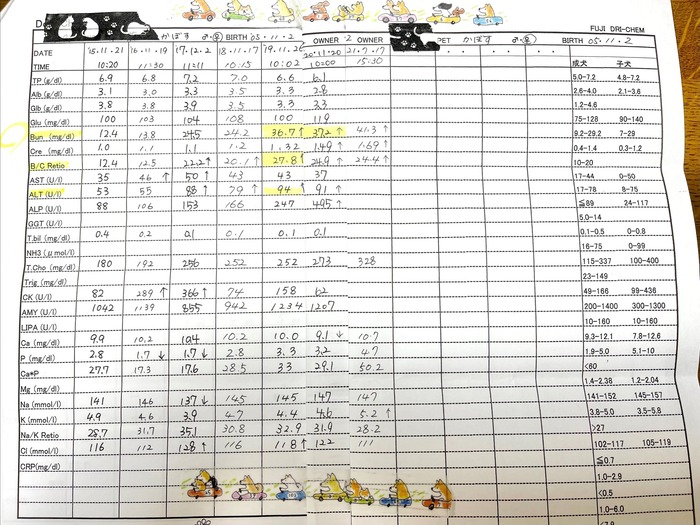 かぼす ♂・♀ BIRTH '05.11.2 OWNER OWNER PET かぼす ♂・♀ BIRTH '05.11.2
FUJI DRI-CHEM
DATE '15.11.21 '16.11.19 '17.12.2 '18.11.17 '20.11.20 21.7.17 成犬 子犬
TIME 10:20 11:30 11:11 10:15 10:02 10:00 15:30
TP (g/dl) 6.9 6.8 7.2 7.0 6.6 6.1 5.0-7.2 4.8-7.2
Alb (g/dl) 3.1 3.0 3.3 3.5 3.3 2.8 2.6-4.0 2.1-3.6
Glb (g/dl) 3.8 3.8 3.9 3.5 3.3 3.3 1.2-4.6
Glu (mg/dl) 100 103 104 108 100 119 75-128 90-140
Bun (mg/dl) 12.4 13.8 24.5 24.2 36.7↑ 37.2↑ 41.3↑ 9.2-29.2 7-29
Cre (mg/dl) 1.0 1.1 1.1 1.2 1.32 1.49↑ 1.69↑ 0.4-1.4 0.3-1.2
B/C Retio 12.4 12.5 22.2↑ 20.1↑ 27.8↑ 24.9↑ 24.4↑ 10-20
AST (U/l) 35 46↑ 50↑ 43 43 37 17-44 0-50
ALT (U/l) 53 55 88↑ 79↑ 94↑ 91↑ 17-78 8-75
ALP (U/l) 88 106 153 166 247 495↑ ≦89 24-117
GGT (U/l) 5.0-14
T.bil (mg/dl) 0.4 0.2 0.1 0.1 0.1 0.1 0.1-0.5 0-0.8
NH3 (μmol/l) 16-75 0-99
T.Cho (mg/dl) 180 192 256 252 252 273 328 115-337 100-400
Trig. (mg/dl) 23-149
CK (U/l) 82 289↑ 366↑ 74 158 62 49-166 99-436
AMY (U/l) 1042 1139 855 942 1234 1207 200-1400 300-1300
LIPA (U/l) 10-160 10-160
Ca (mg/dl) 9.9 10.2 10.4 10.2 10.0 9.1↓ 10.7 9.3-12.1 7.8-12.6
P (mg/dl) 2.8 1.7↓ 1.7↓ 2.8 3.3 3.2 4.7 1.9-5.0 5.1-10
Ca*P 27.7 17.3 17.6 28.5 33 29.1 50.2 <60
Mg (mg/dl) 1.4-2.38 1.2-2.04
Na (mmol/l) 141 146 137↓ 145 145 147 147 141-152 145-157
K (mmol/l) 4.9 4.6 3.9 4.7 4.4 4.6 5.2↑ 3.8-5.0 3.5-5.8
Na/K Retio 28.7 31.7 35.1 30.8 32.9 31.9 28.2 >27
Cl (mmol/l) 116 112 128↑ 116 118↑ 122 111 102-117 105-119
CRP(mg/dl) ≦0.7
1.0-2.9
<0.5
1.0-6.0